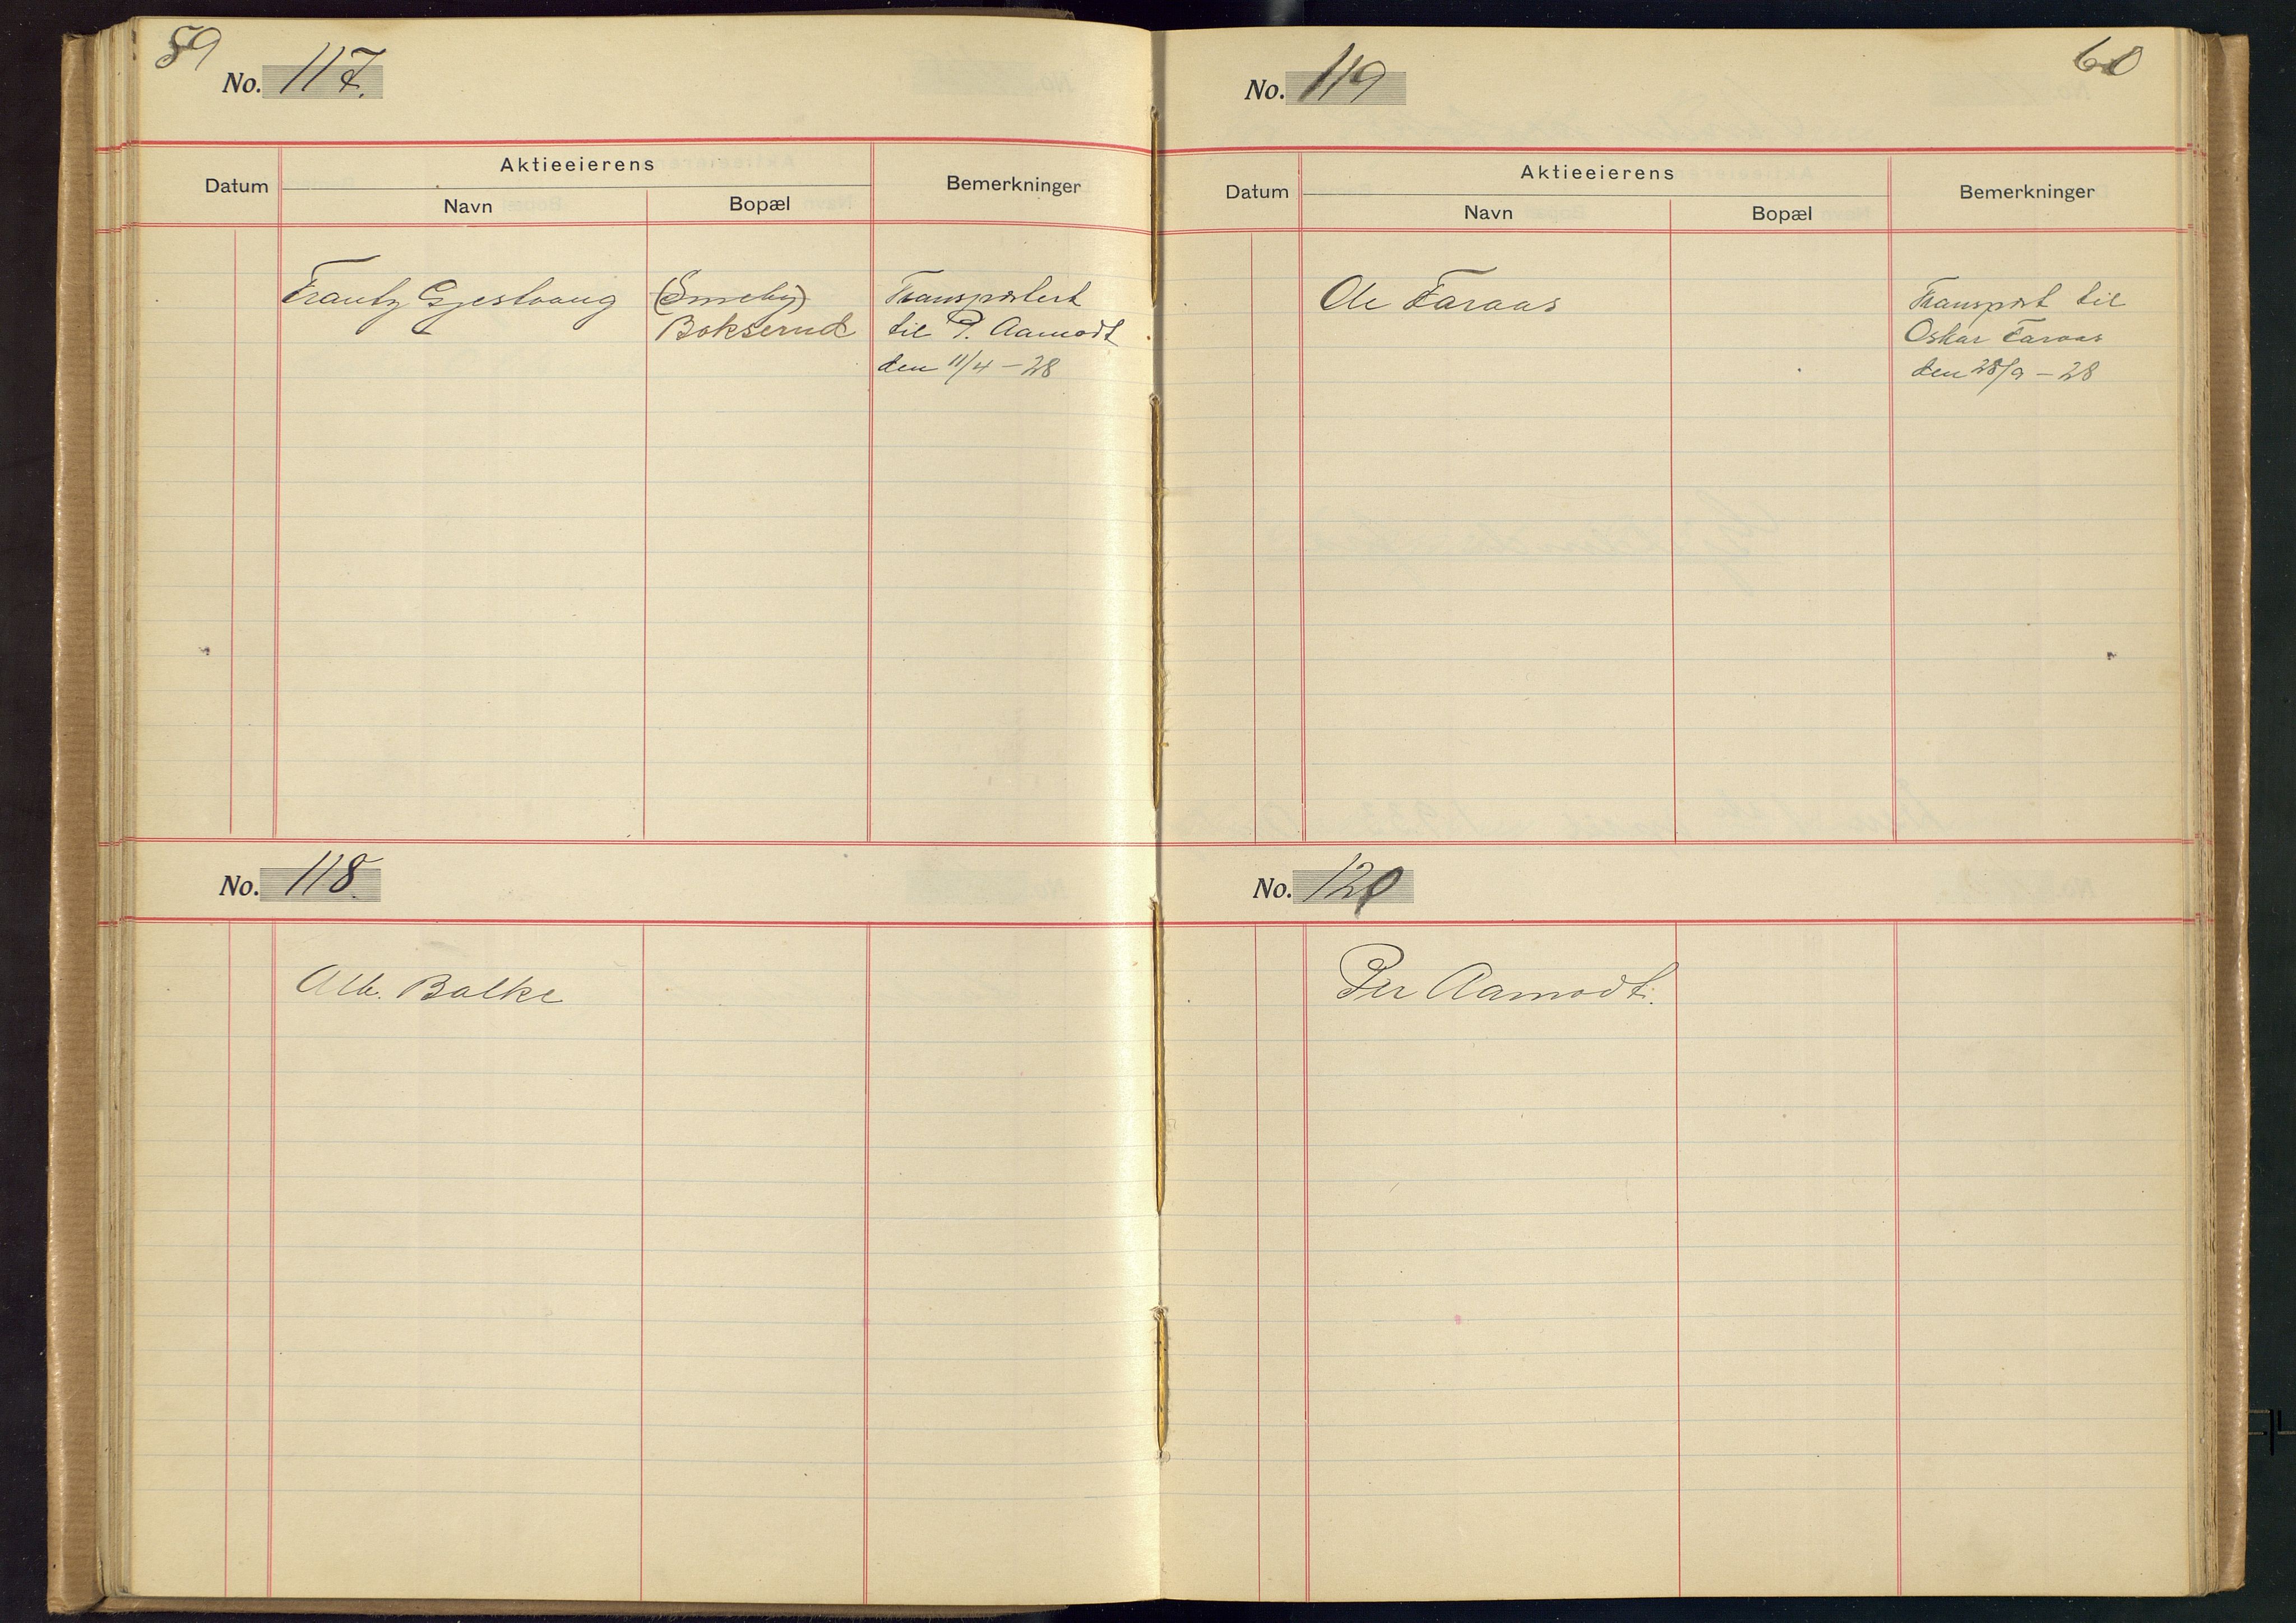 59
No. 117.
Aktieeierens
Datum Navn Bopæl Bemerkninger
Frantz Gjestvang (Smeby) Transportert
Bokserud til P. Aamodt
den 11/4 - 28
No. 118
Alb. Balke
60
No. 119
Aktieeierens
Datum Navn Bopæl Bemerkninger
Ole Faraas Transport til
Oskar Faraas
den 28/9 - 28
No. 120
Per Aamodt.